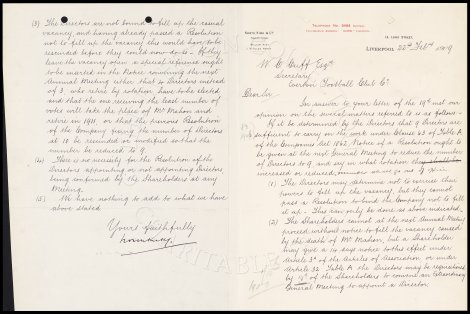 TELEPHONE No.
14 LORD STREET,
LIVERPOOL, 22nd Feby 1909
W. C. Cuff Esqre
Secretary
Everton Football Club Co
Dear Sir
In answer to your letter of the 19th inst our
opinion on the matters referred to is as follows -
If it be determined by the Directors that 9 Directors are
sufficient to carry on the work under Clause 63 of Table A
of the Companies Act 1862, Notice of a Resolution ought to
be given at the next General Meeting to reduce the number
of Directors to 9 and say in what rotation
increased or reduced number
(1) The Directors may determine not to exercise their
powers to fill up the vacancy, but they cannot
pass a Resolution to bind the Company not to fill
it up. This can only be done as above indicated.
(2) The Shareholders cannot at the next Annual Meeting
proceed without notice to fill the vacancy caused
by the death of Mr Mahon, but a Shareholder
may give a 10 day notice to this effect under
Article 3 of the Articles of Association or under
Article 32 Table A the Directors may be requisitioned
by 1/5th of the Shareholders to convene an Extraordinary
General Meeting to appoint a Director.
(3) The Directors are not bound to fill up the casual
vacancy, and having already passed a Resolution
not to fill up the vacancy this would have to be
rescinded before they could now do so. If they
leave the vacancy open a special reference ought
to be inserted in the Notice convening the next
Annual Meeting either that 4 Directors instead
of 3 who retire by rotation have to be elected
and that the one receiving the least number of
votes will take the place of Mr Mahon and
retire in 1911, or that the previous Resolution
of the Company fixing the number of Directors
at 10 be rescinded or modified so that the
number be reduced to 9.
(4) There is no necessity for the Resolution of the
Directors appointing or not appointing Directors
being confirmed by the Shareholders at any
Meeting.
(5) We have nothing to add to what we
have above stated
Yours faithfully